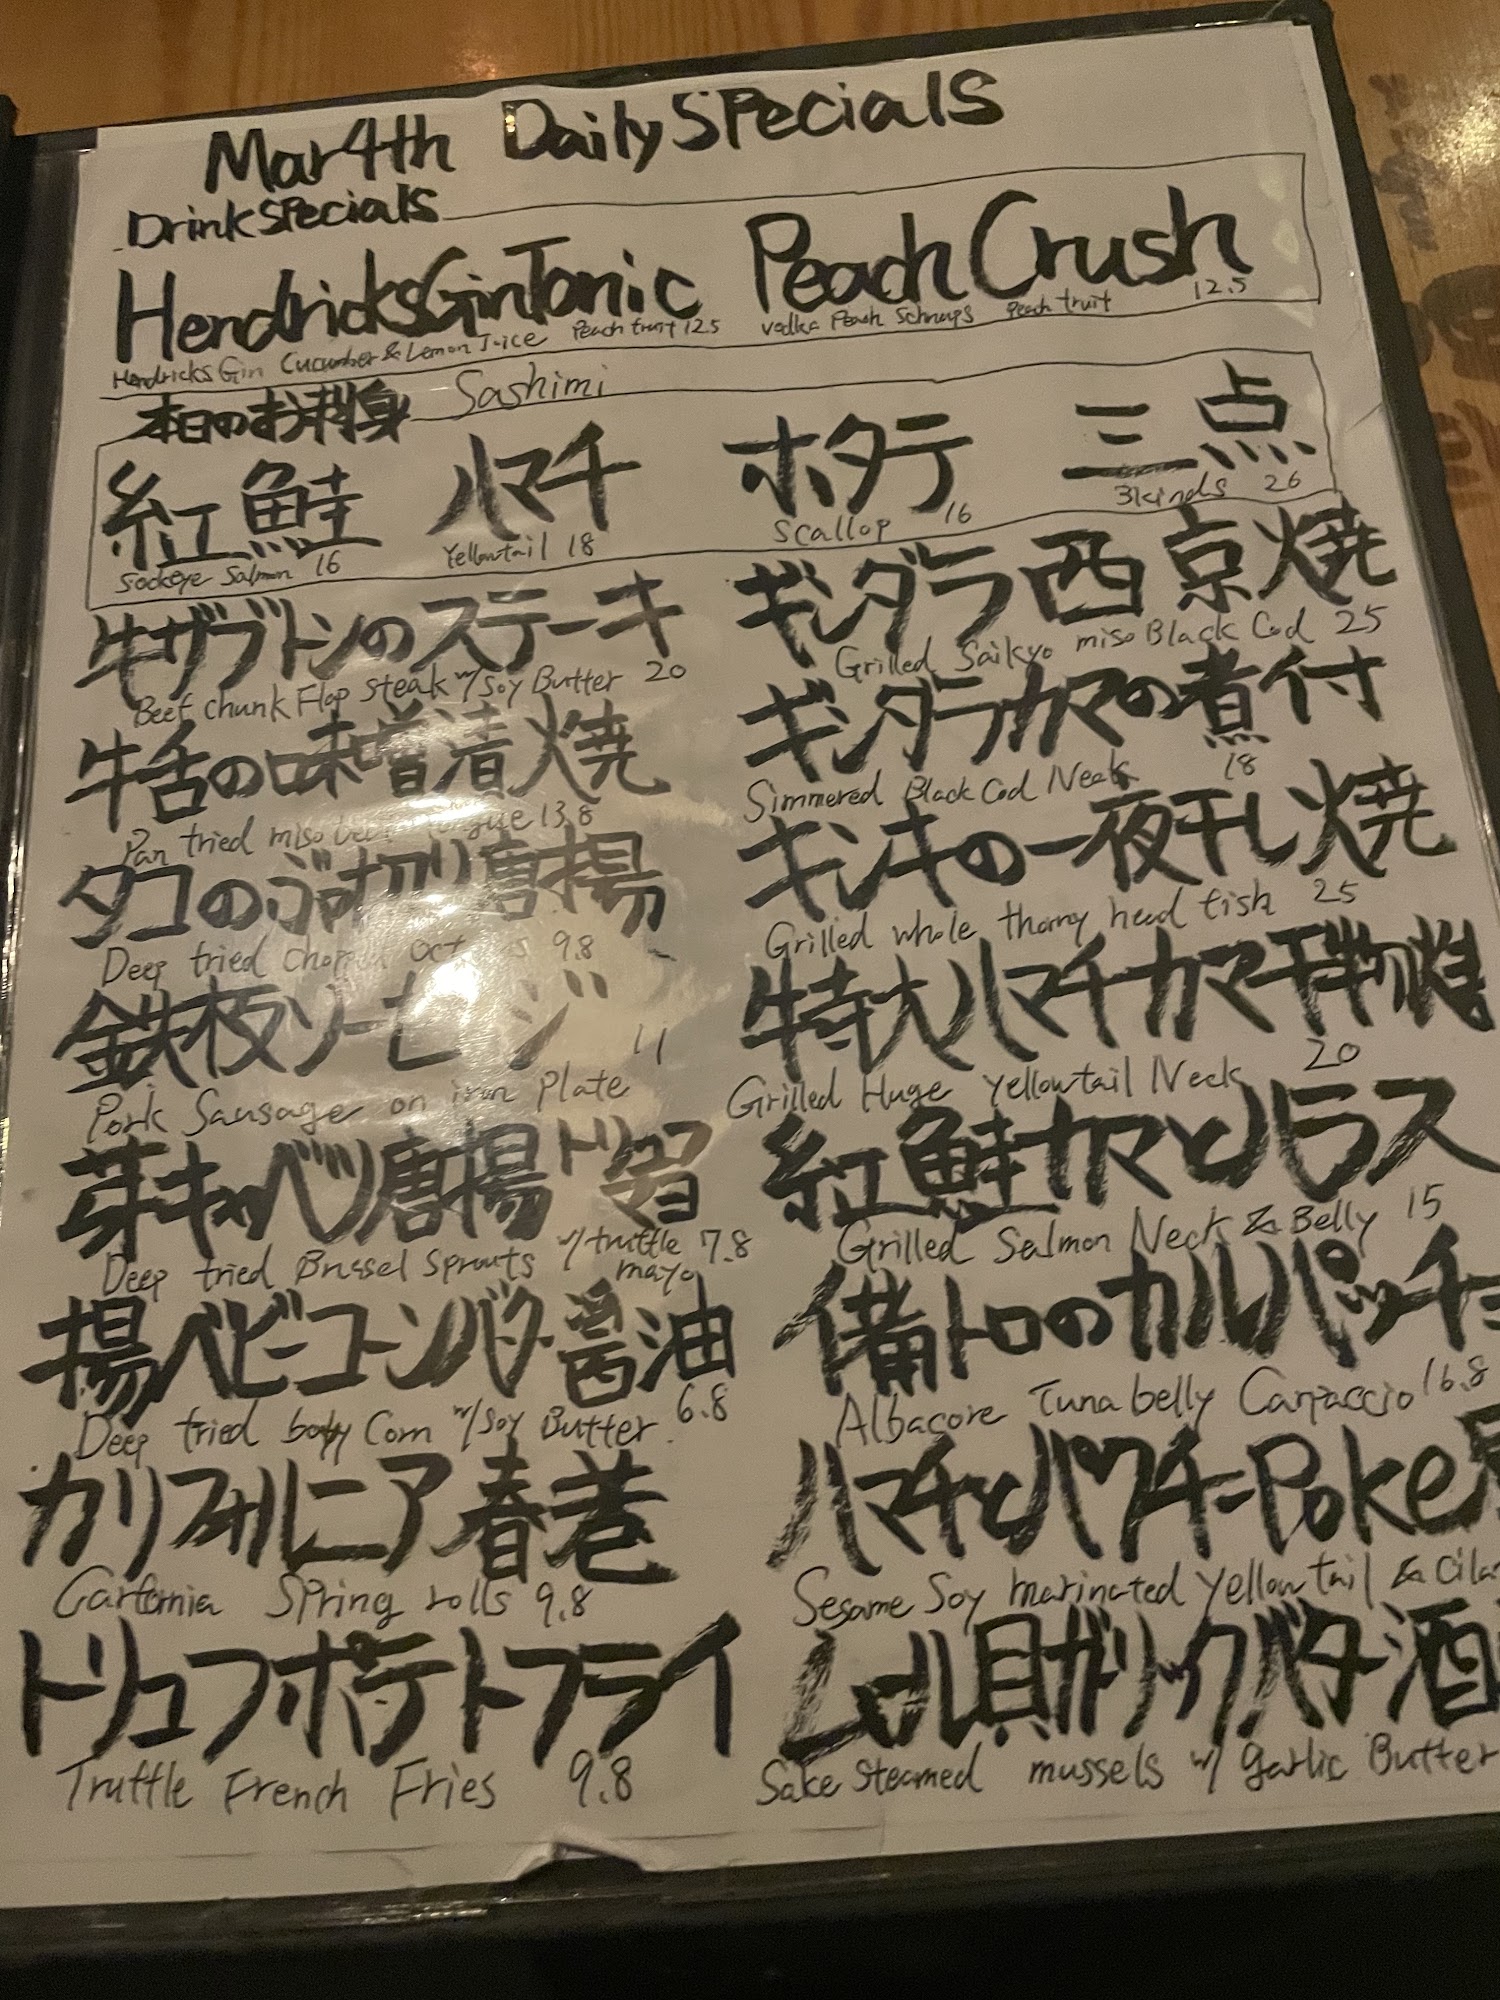 Mar 4th Daily Specials
Drink Specials
Hendricks Gin Tonic
Hendricks Gin Cucumber & Lemon Juice Peach fruit 12.5
Peach Crush
vodka Peach Schnaps Peach fruit 12.5
本日のお刺身 Sashimi
紅鮭
Sockeye Salmon 16
ハマチ
Yellowtail 18
ホタテ
Scallop 16
三点
3kinds 26
牛ザブトンのステーキ
Beef chunk Flap steak w/ Soy Butter 20
牛舌の味噌漬焼
Pan fried miso beef tongue 13.8
タコのぶつ切り唐揚
Deep fried chopped Octopus 9.8
鉄板ソーセージ 11
Pork Sausage on iron Plate
芽キャベツ唐揚 トリュフマヨ
Deep fried Brussel Sprouts w/ truffle mayo 7.8
揚ベビーコーンバター醤油
Deep fried baby Corn w/ Soy Butter 6.8
カリフォルニア春巻
Carfornia Spring rolls 9.8
トリュフポテトフライ
Truffle French Fries 9.8
ギンダラ西京焼
Grilled Saikyo miso Black Cod 25
ギンダラカマの煮付
Simmered Black Cod Neck 18
キンキの一夜干し焼
Grilled whole thorny head fish 25
特大ハマチカマ干物焼
Grilled Huge Yellowtail Neck 20
紅鮭カマとハラス
Grilled Salmon Neck & Belly 15
備トロのカルパッチョ
Albacore Tuna belly Carpaccio 16.8
ハマチとパクチーPoke
Sesame Soy marinated Yellow tail & Cila
ムール貝ガーリックバター酒
Sake steamed mussels w/ garlic Butter